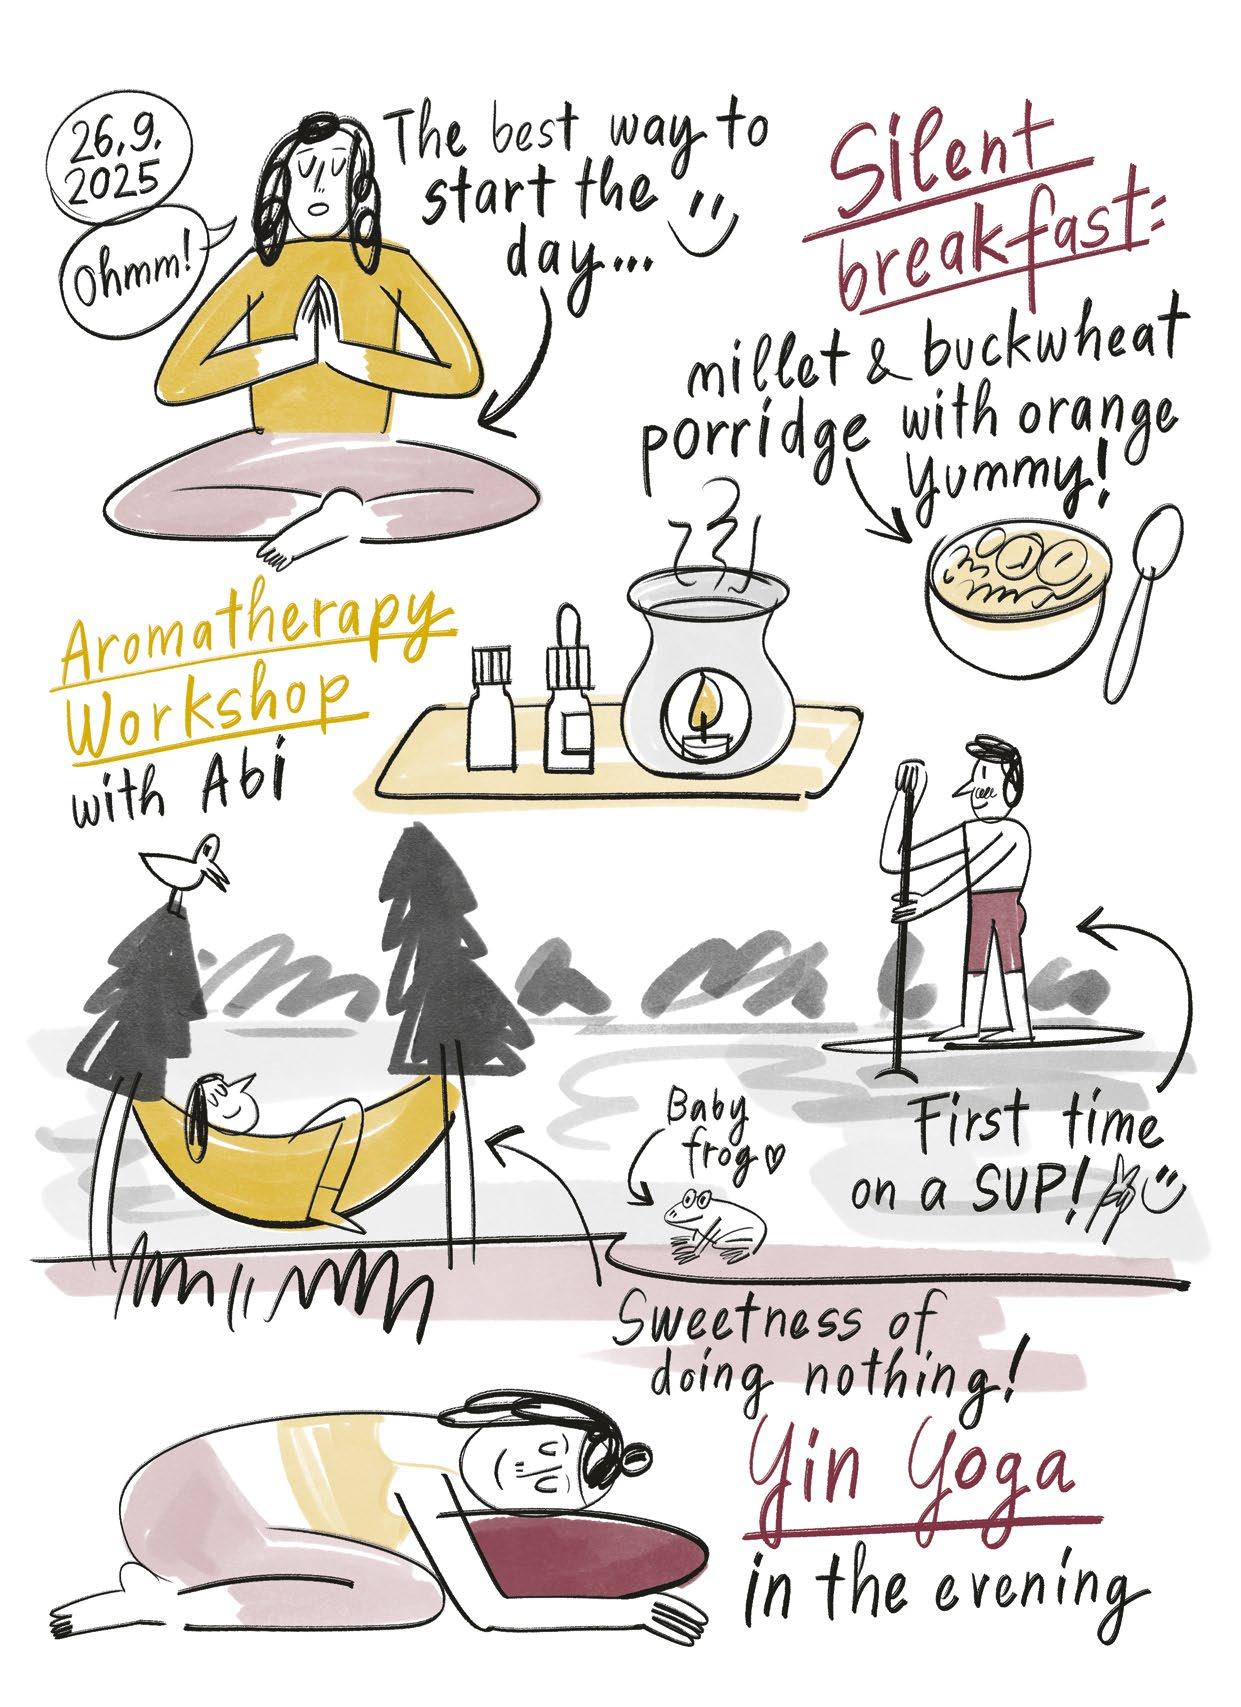 26.9.
2025
Ohmm!
The best way to
start the
day...
Silent
breakfast:
millet & buckwheat
porridge with orange
Yummy!
Aromatherapy
Workshop
with Abi
Baby
frog ♡
First time
on a SUP!
Sweetness of
doing nothing!
Yin Yoga
in the evening